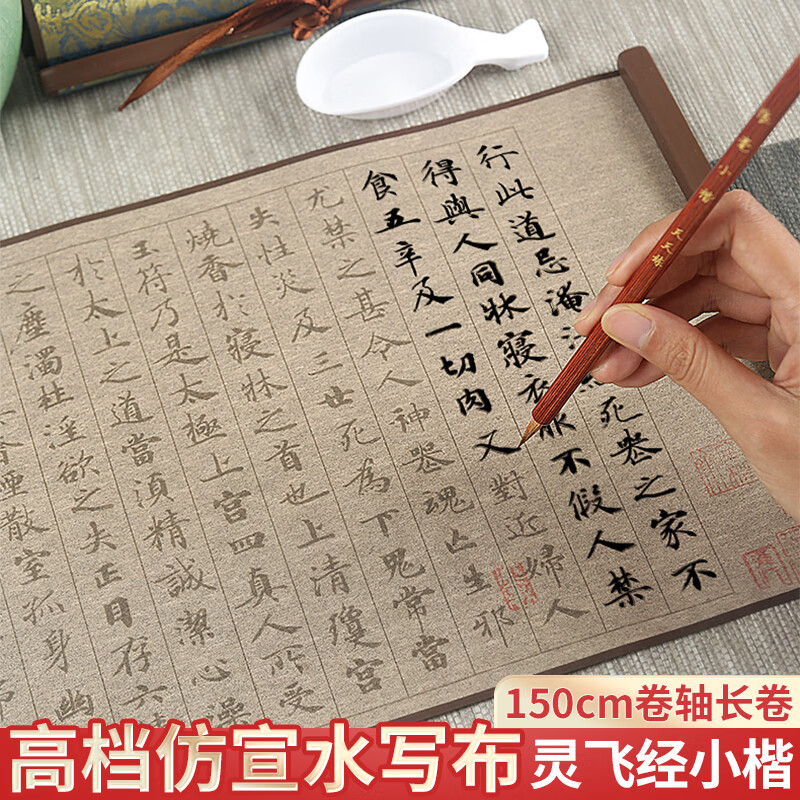 行此道忌淹死喪之家不
得與人同牀寢衣服不假人禁
食五辛及一切肉又對近婦人
尤禁之甚令人神喪魂亡生邪
失性災及三世死為下鬼常當
燒香於寢牀之首也上清瓊宮
玉符乃是太極上宮四真人所受
於太上之道當須精誠潔心澡
之塵濁杜淫欲之失正目存六精
散室孤身幽
毫小楷 天天練
150cm卷轴长卷
高档仿宣水写布
灵飞经小楷